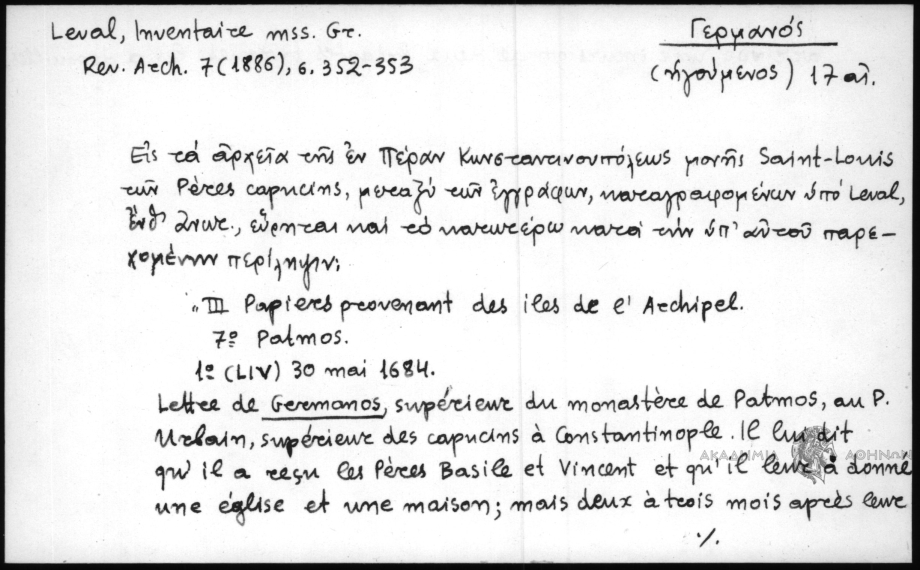 Leval, Inventaire mss. Gr.
Rev. Arch. 7 (1886), σ. 352-353
Γερμανός
(ἡγούμενος) 17 αἰ.
Εἰς τά ἀρχεῖα τῆς ἐν Πέραν Κωνσταντινουπόλεως μονῆς Saint-Louis
τῶν Pères capucins, μεταξύ τῶν ἐγγράφων, καταγραφομένων ὑπό Leval,
ἔνθ' ἄνωτ., εὕρηται καί τό κατωτέρω κατά τήν ὑπ' αὐτοῦ παρε-
χομένην περίληψιν:
"III Papiers provenant des iles de l' Archipel.
7º Patmos.
1º (LIV) 30 mai 1684.
Lettre de Germanos, supérieur du monastère de Patmos, au P.
Urbain, supérieur des capucins à Constantinople. Il lui dit
qu'il a reçu les Pères Basile et Vincent et qu'il leur a donné
une église et une maison; mais deux à trois mois après leur
./.
ΑΚΑΔΗΜΙΑ ΑΘΗΝΩΝ